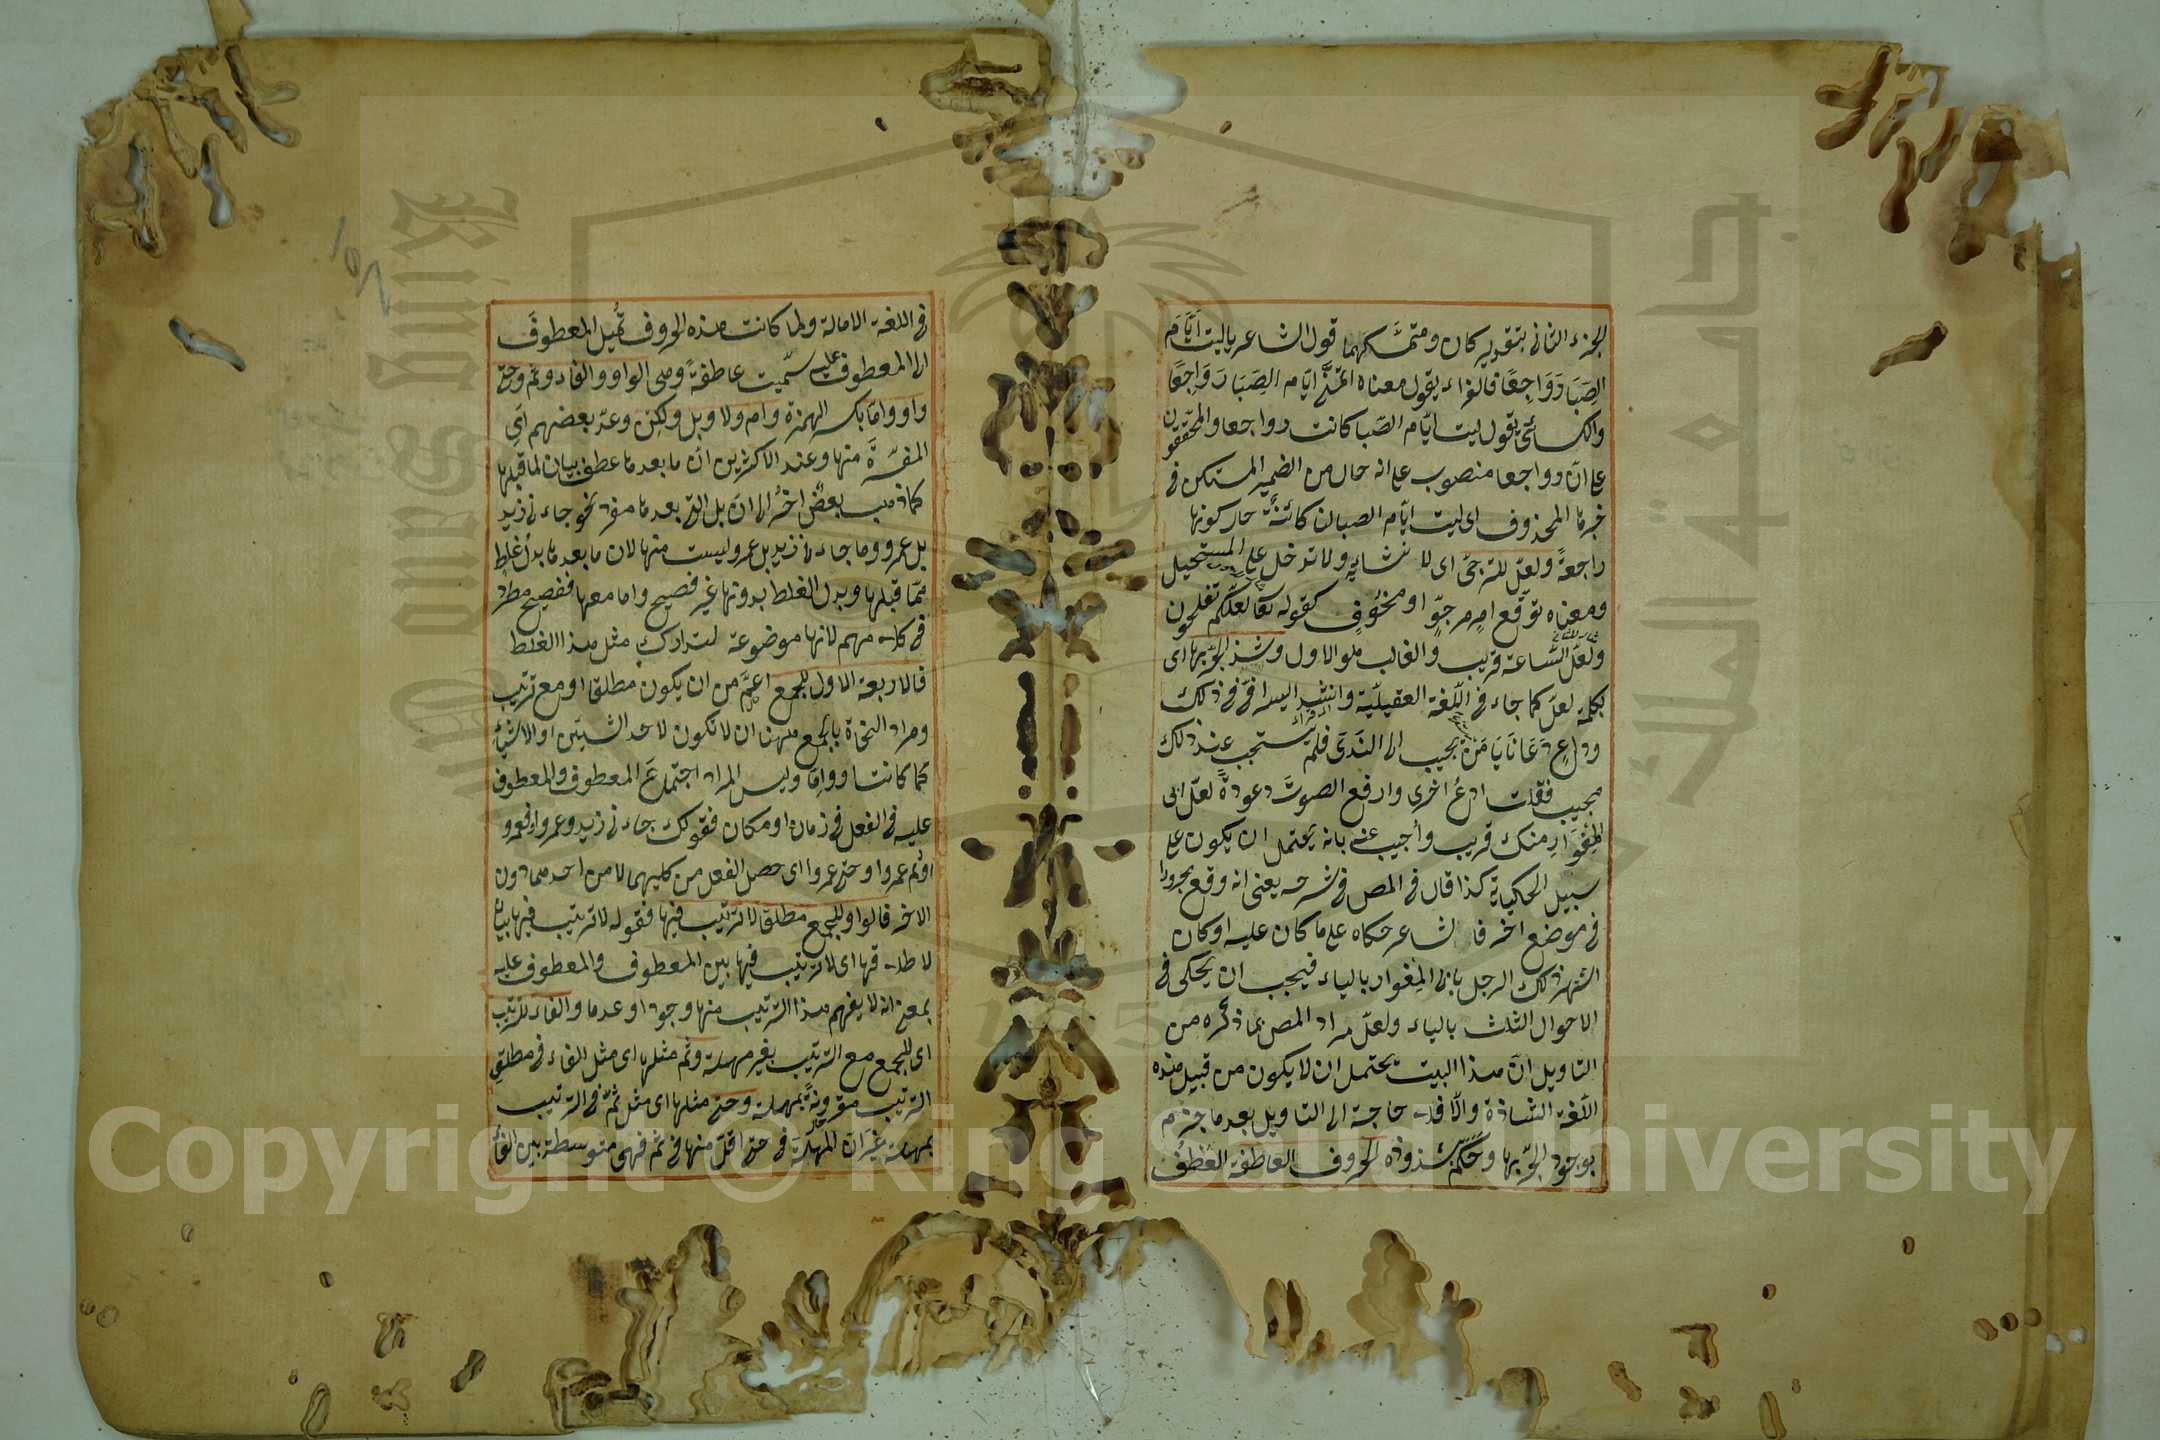 الجزء الثانى بتقدير كان ومتمسكهما قول الشاعر ياليت ايّامَ
الصِبَا رَوَاجِعَا فالفراء يقول معناه اتمنّى ايّام الصِبَا رَوَاجِعَا
والكسائىّ يقول ليت ايّام الصّبا كانت رواجعا والمحققون
على انّ رواجعا منصوب على انه حال من الضمير المستكن فى
خبرها المحذوف اى ليت ايّام الصبا لنا كائنةً حال كونها
راجعةً ولعلّ للترجّى اى لانشائه ولا تدخل على المستحيل
ومعناه توقّع امرٍ مرجوٍّ او مخوُفٍ كقوله تعا لعلّكم تفلحون
ولعلّ السّاعة قريب والغالب هو الاول وشذ الجرّ بها اى
بكلمة لعلّ كما جاء فى اللّغة العقيليّة وانشد السيرافىّ فى ذلك
وداعٍ دَعَانَا يَا مَنْ يجيب الى النَدَى فلم يستجب عند ذلك
مجيب فقلت ادعُ اخرى وارفع الصوتَ دعوةً لعلّ ابى
المِغْوَارِ منك قريب وأجيب عنه بانه يحتمل ان يكون على
سبيل الحكاية كذا قال فى المص فى شرحه يعنى انه وقع مجرورا
فى موضع اخر فالشاعر حكاه على ما كان عليه او كان
اشتهر ذلك الرجل بابى المِغوار بالياء فيجب ان يحكى فى
الاحوال الثلث بالياء ولعلّ مراد المص بما ذكره من
التاويل انّ هذا البيت يحتمل ان لا يكون من قبيل هذه
اللّغة الشاذة والّا فلا حاجة الى التاويل بعد ما جزم
بوجود الجرّ بها وحكم بشذوذه الحروف العاطفة العَطْفُ
فى اللغة الامالة ولما كانت هذه الحروف تُميل المعطوفَ
الى المعطوف عليه سمّيت عاطفةً وهى الواو والفاء وثم وحتى
واو وامّا بكسر الهمزة وام ولا وبل ولكن وعدّ بعضهم اى
المفسّرة منها وعند الاكثرين ان ما بعدها عطف بيان لما قبلها
كما ذهب بعضٌ اخر الى انّ بل التى بعدها مفرد نحو جاءنى زيد
بل عمرو وما جاءنى زيد بل عمرو ليست منها لان ما بعدها بدل غلط
ممّا قبلها وبدل الغلط بدونها غير فصيح واما معها ففصيح مطرد
فى كلامهم لانها موضوعة لتدارك مثل هذا الغلط
فالاربعة الاول للجمع اعمّ من ان يكون مطلقا او مع ترتيب
ومراد النحاة بالجمع ههنا ان لا تكون لاحد الشيئين او الاشياء
كما كانت او وامّا وليس المراد اجتماع المعطوف والمعطوف
عليه فى الفعل فى زمان او مكان فقولك جاءنى زيد وعمرو او فعمرو
او ثم عمرو او حتى عمرو اى حصل الفعل من كليهما لا من احدهما دون
الاخر فالواو للجمع مطلقا لا ترتيب فيها فقوله لا ترتيب فيها بيان
لاطلاقها اى لا ترتيب فيها بين المعطوف والمعطوف عليه
بمعنى انه لا يفهم هذا الترتيب منها وجودا وعدما والفاء للترتيب
اى للجمع مع الترتيب بغير مهلة وثم مثلها اى مثل الفاء فى مطلق
الترتيب مقرونةً بمهلة وحتى مثلها اى مثل ثمّ فى الترتيب
بمهلة غير انّ المهلة فى حتى اقلّ منها فى ثم فهى متوسطة بين الفاء